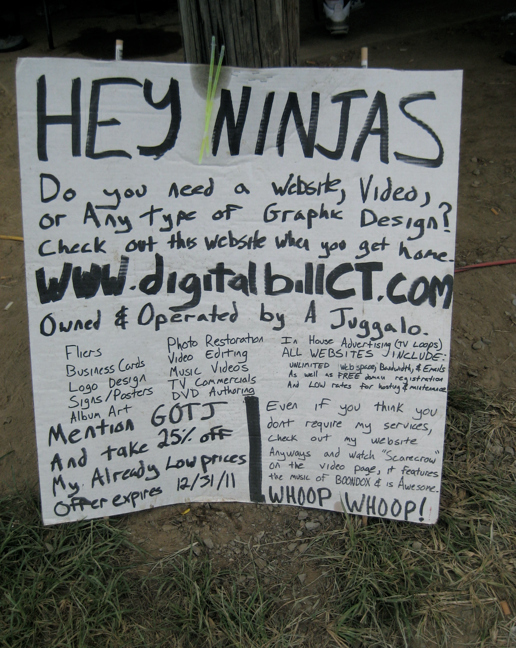 HEY NINJAS
Do you need a Website, Video,
or Any type of Graphic Design?
Check out this website when you get home.
WWW.digitalbillCT.com
Owned & Operated by A Juggalo.
Fliers
Business Cards
Logo Design
Signs/Posters
Album Art
Photo Restoration
Video Editing
Music Videos
TV Commercials
DVD Authoring
In House Advertising (TV Loops)
ALL WEBSITES INCLUDE:
UNLIMITED Webspace, Bandwidth, & Emails
As well as FREE domain registration
And LOW rates for hosting & maintenance
Mention GOTJ
And take 25% off
My Already Low prices
Offer expires 12/31/11
Even if you think you
dont require my services,
Check out my website
Anyways and watch "Scarecrow"
on the video page, it features
the music of BOONDOX & is Awesome.
WHOOP WHOOP!